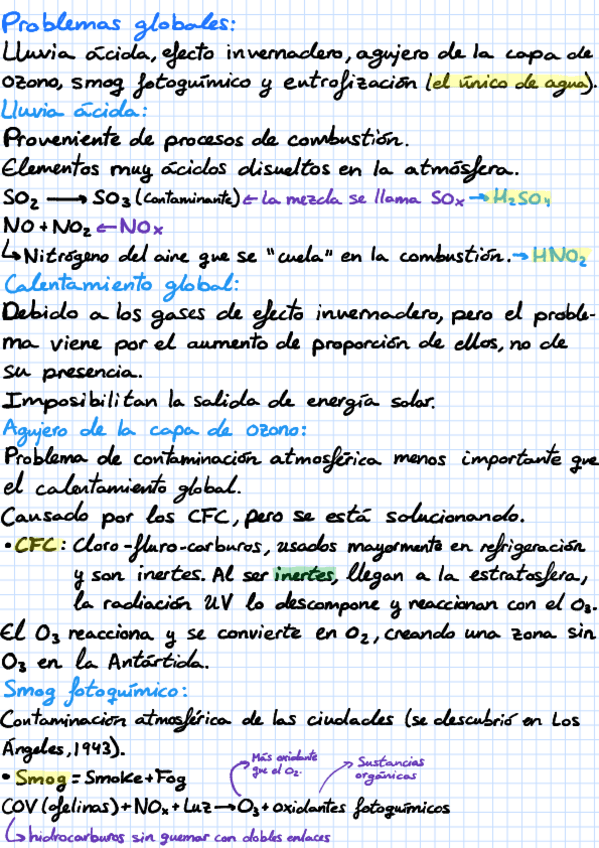 Problemas globales:
Lluvia ácida, efecto invernadero, agujero de la capa de
ozono, smog fotoquímico y entrofización (el único de agua).
Lluvia ácida:
Proveniente de procesos de combustión.
Elementos muy ácidos disueltos en la atmósfera.
SO₂ → SO₃ (contaminante) ← La mezcla se llama SOx → H₂SO₄
NO + NO₂ ← NOx
↳ Nitrógeno del aire que se "cuela" en la combustión. → HNO₂
Calentamiento global:
Debido a los gases de efecto invernadero, pero el proble-
ma viene por el aumento de proporción de ellos, no de
su presencia.
Imposibilitan la salida de energía solar.
Agujero de la capa de ozono:
Problema de contaminación atmosférica menos importante que
el calentamiento global.
Causado por los CFC, pero se está solucionando.
• CFC: Cloro-fluro-carburos, usados mayormente en refrigeración
y son inertes. Al ser inertes, llegan a la estratosfera,
la radiación UV lo descompone y reaccionan con el O₃.
El O₃ reacciona y se convierte en O₂, creando una zona sin
O₃ en la Antártida.
Smog fotoquímico:
Contaminación atmosférica de las ciudades (se descubrió en Los
Ángeles, 1943).
Más oxidante
que el O₂.
Sustancias
orgánicas
• Smog = Smoke + Fog
COV (ofelinas) + NOx + Luz → O₃ + oxidantes fotoquímicos
↳ hidrocarburos sin quemar con dobles enlaces